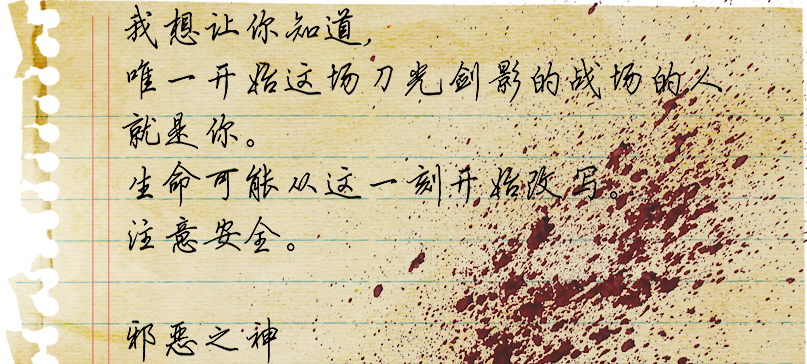 我想让你知道,
唯一开始这场刀光剑影的战场的人
就是你。
生命可能从这一刻开始改写。
注意安全。
邪恶之神